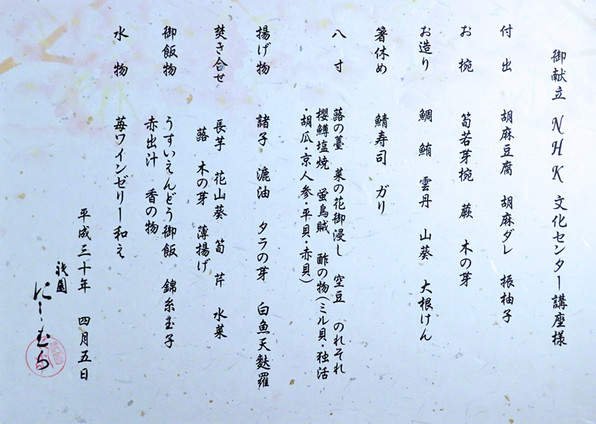 御献立 NHK 文化センター講座様
付出 胡麻豆腐 胡麻ダレ 振柚子
お椀 筍若芽椀 蕨 木の芽
お造り 鯛 鮪 雲丹 山葵 大根けん
箸休め 鯖寿司 ガリ
八寸 蕗の薹 菜の花御浸し 空豆 のれそれ
櫻鱒塩焼 蛍烏賊 酢の物(ミル貝・独活
・胡瓜・京人参・平貝・赤貝)
揚げ物 諸子 漉油 タラの芽 白魚天麩羅
焚き合せ 長芋 花山葵 筍 芹 水菜
蕗 木の芽 薄揚げ
御飯物 うすいえんどう御飯 錦糸玉子
赤出汁 香の物
水物 苺ワインゼリー和え
平成三十年 四月五日
祇園
にしむら